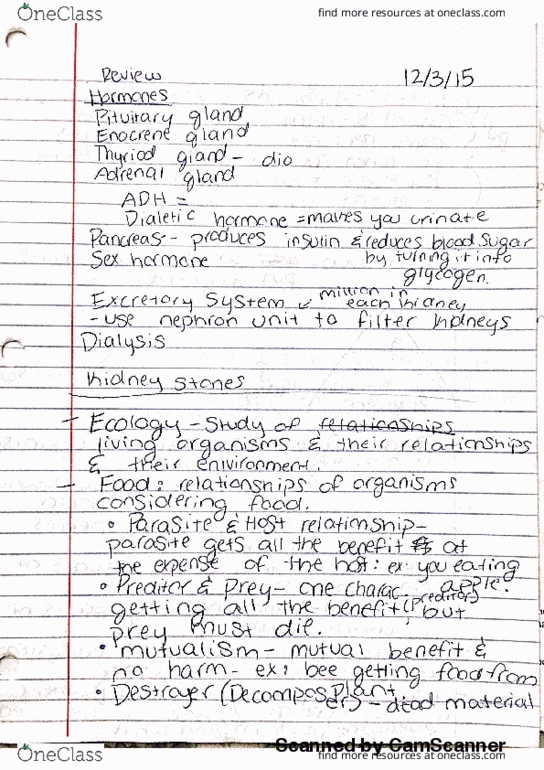 OneClass
find more resources at oneclass.com
Review 12/3/15
Hormones
Pituitary gland
Enocrene gland
Thyriod gland - dio
Adrenal gland
ADH =
Dialetic hormone = makes you urinate
Pancreas - produces insulin & reduces blood sugar
Sex hormone by turning it into
glycogen.
Excretory System million in
each kidney
- use nephron unit to filter kidneys
Dialysis
Kidney stones
- Ecology - Study of relationships
living organisms & their relationships
& their environment.
- Food: relationships of organisms
considering food.
• Parasite & Host relationship -
parasite gets all the benefit at
the expense of the host: ex you eating
apple.
• Preditor & Prey - one charac.
getting all the benefit (preditor) but
prey must die.
• mutualism - mutual benefit &
no harm - ex: bee getting food from
plant.
• Destroyer (Decomposer) - dead material
Scanned by CamScanner
OneClass
find more resources at oneclass.com